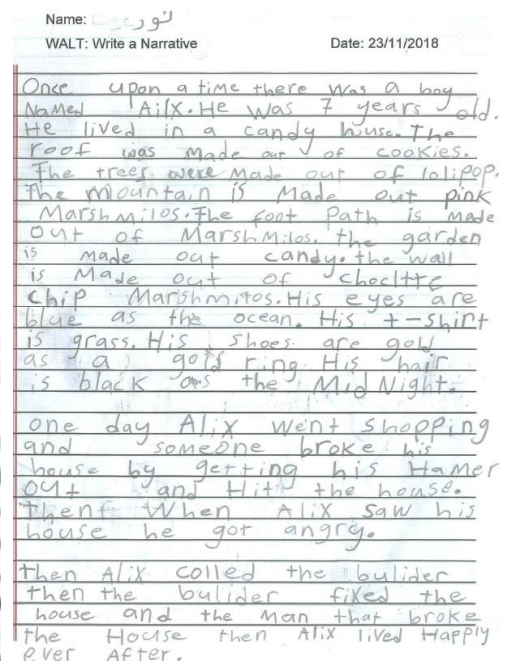 Name:
WALT: Write a Narrative Date: 23/11/2018
Once upon a time there was a boy
Named Ailx. He was 7 years old.
He lived in a candy house. The
roof was Made out of cookies.
The trees were Made out of lolipop.
The mountain is Made out pink
Marshmilos. The foot Path is made
out of Marshmilos. the garden
is made out candy. the wall
is Made out of chocltte
chip Marshmitos. His eyes are
blue as the ocean. His t-shirt
is grass. His shoes are gold
as a gold ring. His hair
is black as the Mid Night.
one day Alix went shopping
and someone broke his
house by getting his Hamer
out and Hit the house.
then When Alix saw his
house he got angry.
then Alix colled the bulider
then the bulider fixed the
house and the Man that broke
the House then Alix lived Happly
ever After.